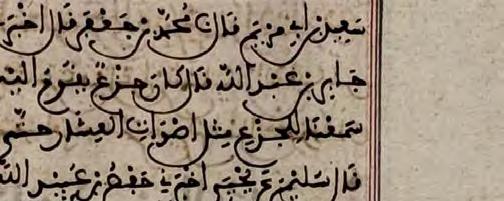 سعيد بن ابي مريم قال نا محمد بن جعفر قال اخبر
جابر بن عبد الله قال كان جذع يقوم اليه
سمعنا للجذع مثل اصوات العشار حتى
قال سليمن عن يحيى اخبرني حفص بن عبيد الله